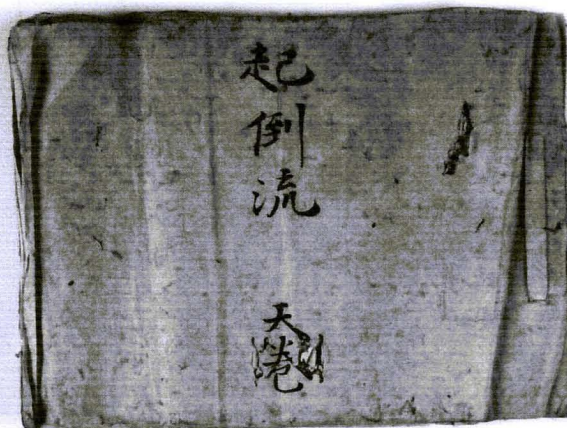 起倒流　天巻